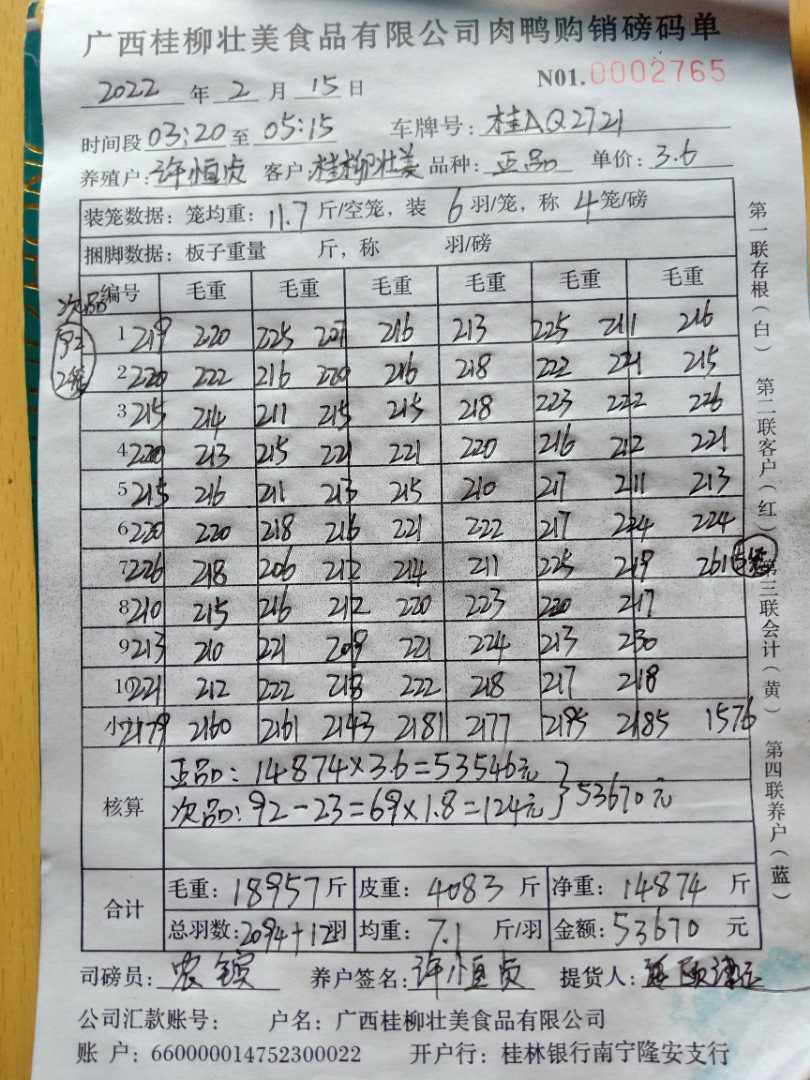 广西桂柳壮美食品有限公司肉鸭购销磅码单
2022 年 2 月 15 日 N01.0002765
时间段 03:20 至 05:15 车牌号: 桂AQ2721
养殖户: 许恒贞 客户: 桂柳壮美 品种: 正品 单价: 3.6
装笼数据: 笼均重: 11.7 斤/空笼, 装 6 羽/笼, 称 4 笼/磅
捆脚数据: 板子重量 斤, 称 羽/磅
次品 编号 毛重 毛重 毛重 毛重 毛重 毛重
92 1 219 220 225 207 216 213 225 211 216
2笼 2 220 222 216 220 216 218 222 221 215
3 215 214 211 215 215 218 223 222 226
4 220 213 215 221 221 220 216 212 221
5 215 216 211 213 215 210 217 211 213
6 220 220 218 216 221 222 217 224 224
7 226 218 206 212 214 211 225 219 261
8 210 215 216 212 220 223 220 217
9 213 210 221 209 221 224 213 230
10 221 212 222 218 222 218 217 218
小 2179 2160 2161 2143 2181 2177 2195 2185 1576
核算 正品: 14874×3.6=53546元
次品: 92-23=69×1.8=124元 } 53670元
合计 毛重: 18957 斤 皮重: 4083 斤 净重: 14874 斤
总羽数: 2094+12羽 均重: 7.1 斤/羽 金额: 53670 元
司磅员: 农 养户签名: 许恒贞 提货人:
公司汇款账号: 户名: 广西桂柳壮美食品有限公司
账 户: 660000014752300022 开户行: 桂林银行南宁隆安支行
第一联存根(白) 第二联客户(红) 第三联会计(黄) 第四联养户(蓝)